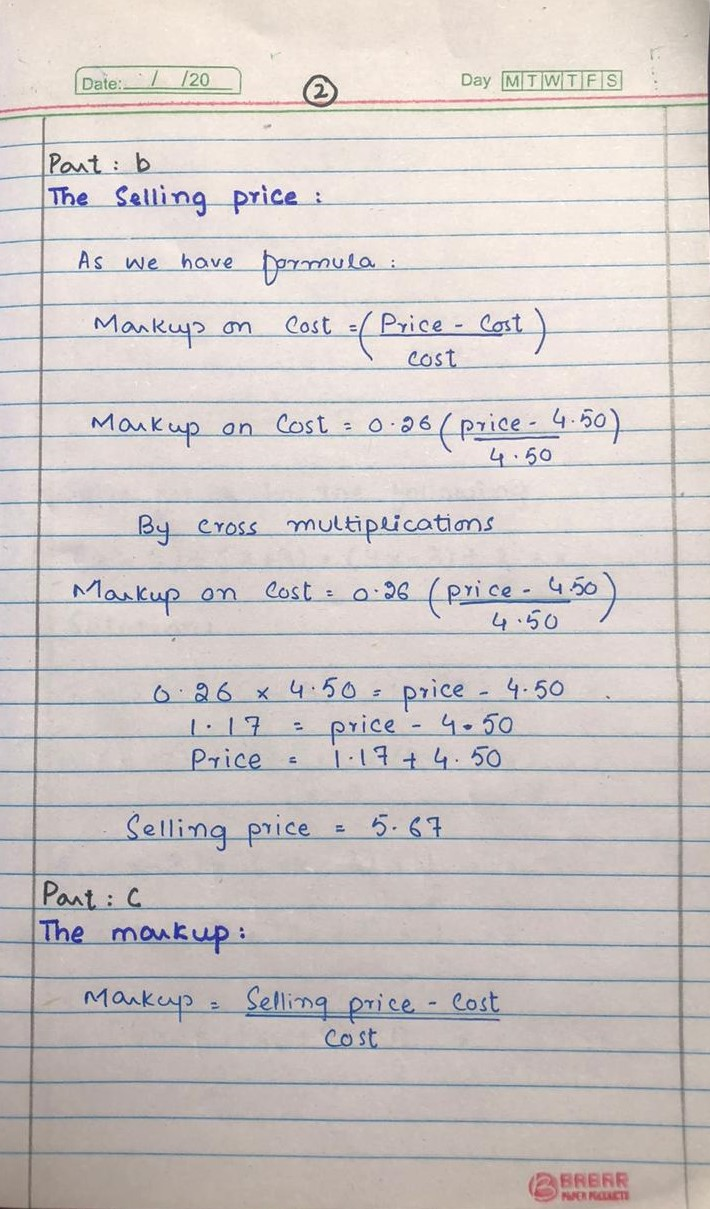 Date: / /20
2
Day M T W T F S
Part : b
The Selling price :
As we have formula :
Markup on Cost = ( Price - Cost / cost )
Markup on Cost = 0.26 ( price - 4.50 / 4.50 )
By cross multiplications
Markup on Cost = 0.26 ( price - 4.50 / 4.50 )
0.26 x 4.50 = price - 4.50
1.17 = price - 4.50
Price = 1.17 + 4.50
Selling price = 5.67
Part : C
The markup :
Markup = Selling price - Cost / Cost
BABAR
PAPER PRODUCTS